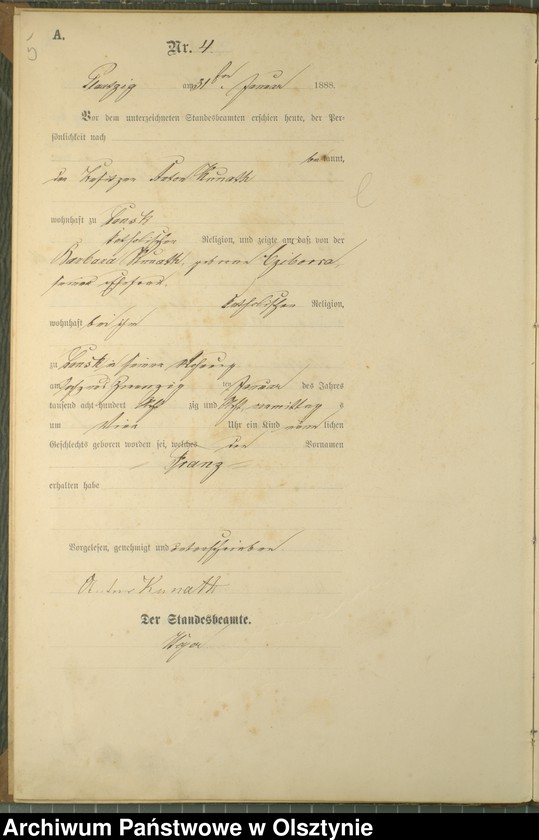 A.
Nr. 4
am 31 ten Januar 1888.
Vor dem unterzeichneten Standesbeamten erschien heute, der Per-
sönlichkeit nach
kannt,
der Besitzer Anton Kunath
wohnhaft zu
katholischer Religion, und zeigte an, daß von der
Barbara Kunath geborene
seiner Ehefrau
katholischer Religion,
wohnhaft bei ihm
zu in seiner Wohnung
am ten Januar des Jahres
tausend acht hundert Acht zig und Acht Vormittag s
um Uhr ein Kind männ lichen
Geschlechts geboren worden sei, welches den Vornamen
Franz
erhalten habe
Vorgelesen, genehmigt und unterschrieben
Anton Kunath
Der Standesbeamte.
Archiwum Państwowe w Olsztynie